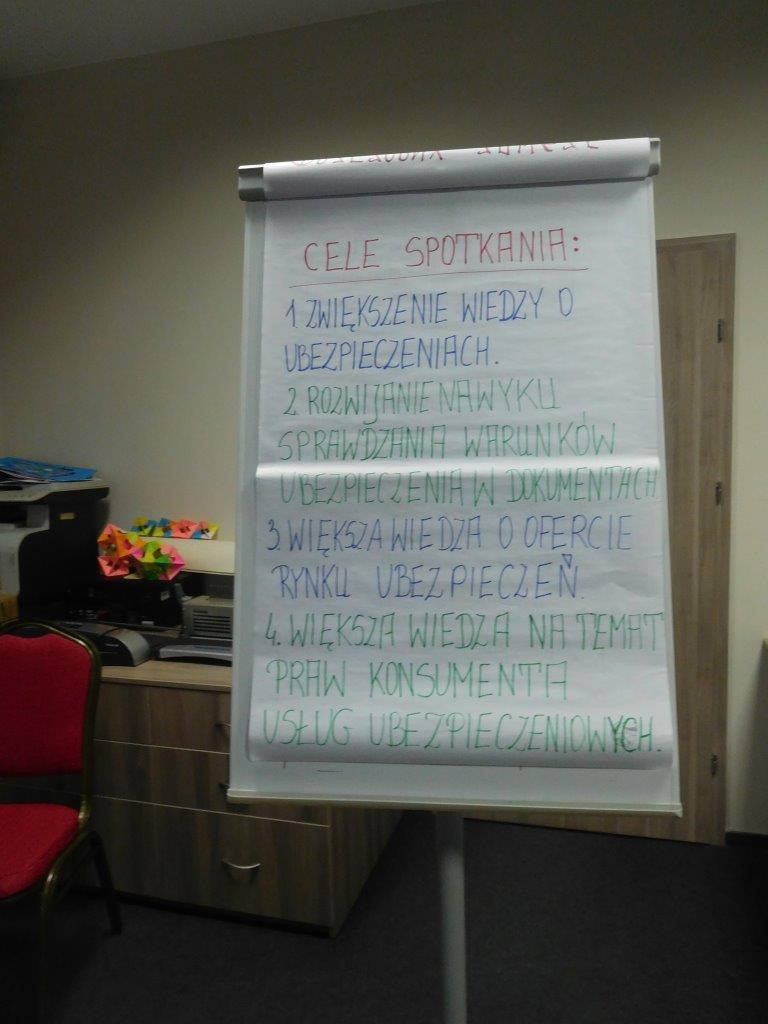 CELE SPOTKANIA:
1 ZWIĘKSZENIE WIEDZY O
UBEZPIECZENIACH.
2. ROZWIJANIE NAWYKU
SPRAWDZANIA WARUNKÓW
UBEZPIECZENIA W DOKUMENTACH
3. WIĘKSZA WIEDZA O OFERCIE
RYNKU UBEZPIECZEŃ.
4. WIĘKSZA WIEDZA NA TEMAT
PRAW KONSUMENTA
USŁUG UBEZPIECZENIOWYCH.